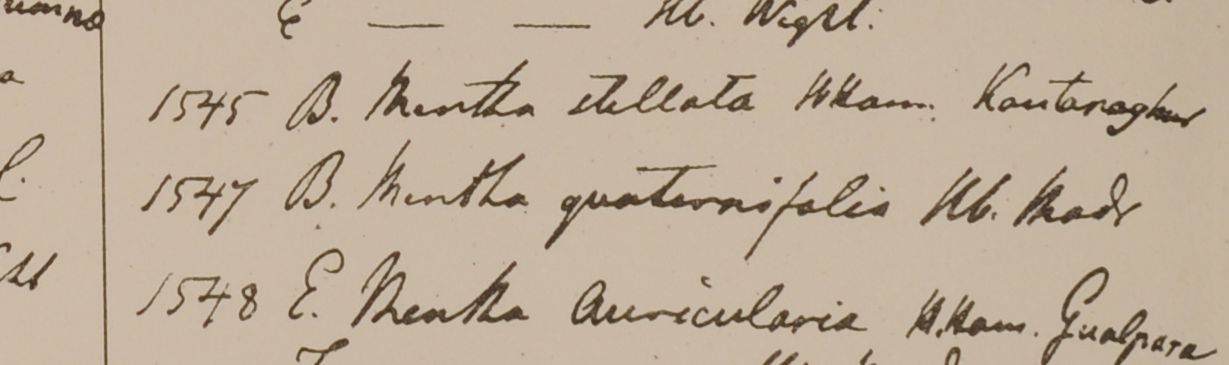 E — — Hb. Wight.
1545 B. Mentha stellata HHam. Kantanaghur
1547 B. Mentha quaternifolia Hb. Madr
1548 E. Mentha auricularia H.Ham. Gualpara